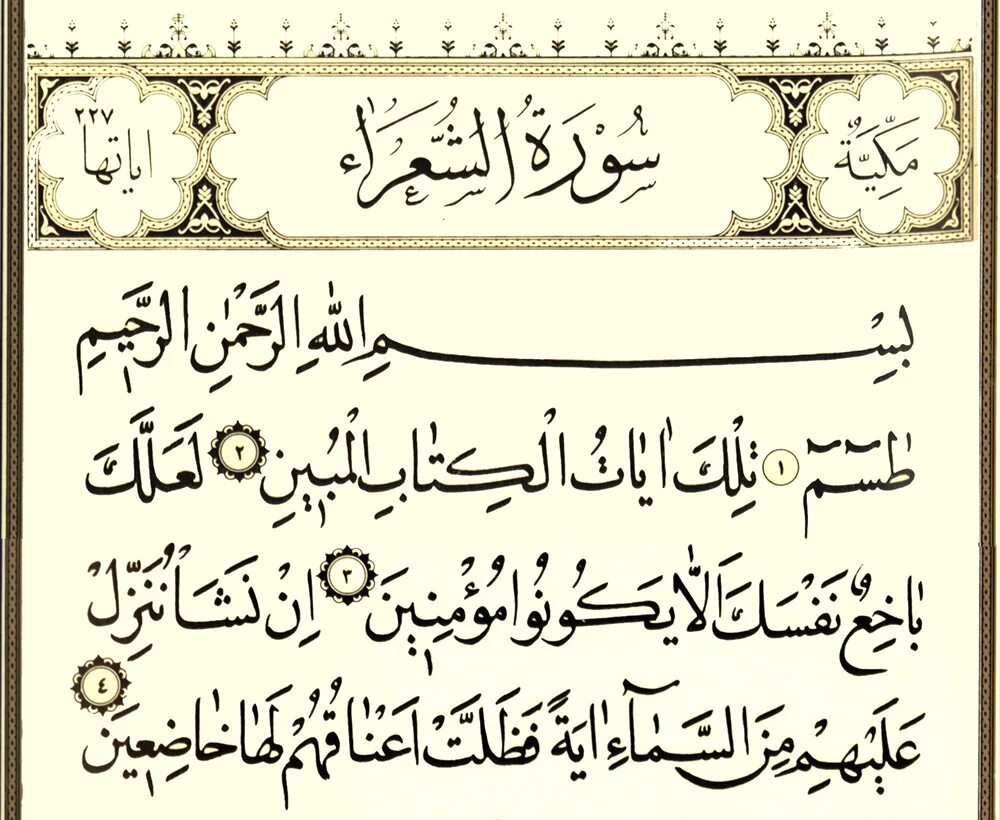 مَكِّيَّةٌ سُورَةُ الشُّعَرَاءِ اياتها ٢٢٧
بِسْمِ اللهِ الرَّحْمٰنِ الرَّحِيمِ
طٰسٓمٓ ١ تِلْكَ اٰيَاتُ الْكِتَابِ الْمُبِينِ ٢ لَعَلَّكَ
بَاخِعٌ نَفْسَكَ اَلَّا يَكُونُوا مُؤْمِنِينَ ٣ اِنْ نَشَأْ نُنَزِّلْ
عَلَيْهِمْ مِنَ السَّمَٓاءِ اٰيَةً فَظَلَّتْ اَعْنَاقُهُمْ لَهَا خَاضِعِينَ ٤